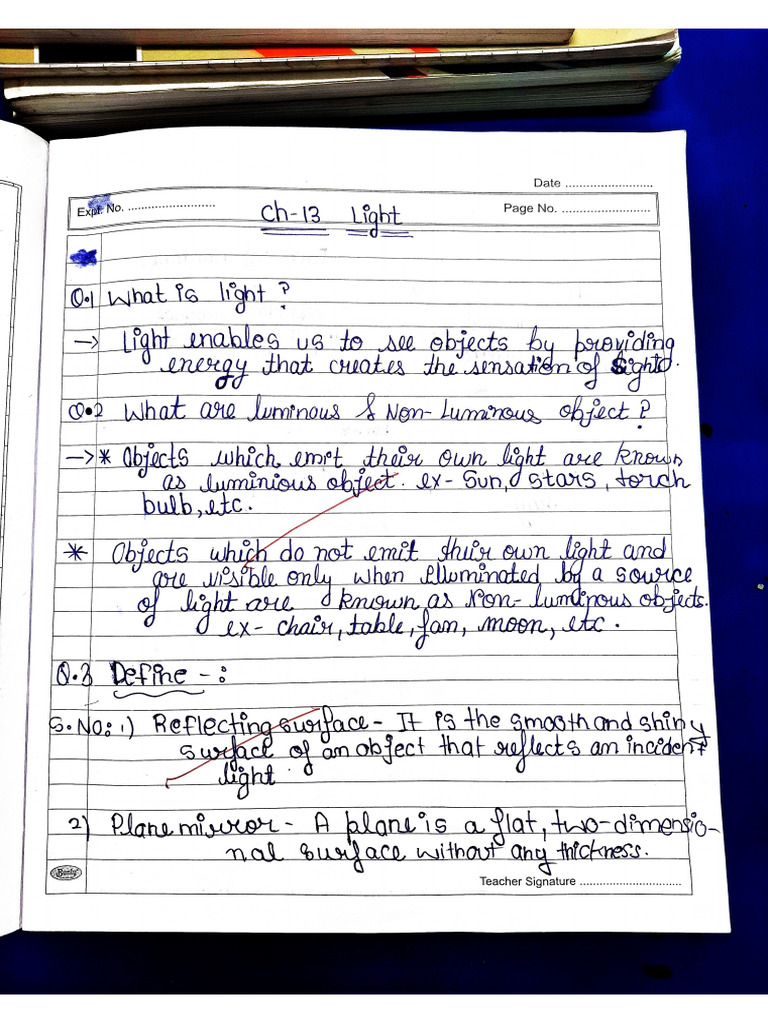 Date ..........................
Expt. No. ..........................
Ch-13 Light
Page No. ..........................
Q.1 What is light?
-> Light enables us to see objects by providing
energy that creates the sensation of sight.
Q.2 What are luminous & Non-Luminous object?
->* Objects which emit their own light are known
as luminious object. ex- Sun, stars, torch
bulb, etc.
* Objects which do not emit their own light and
are visible only when illuminated by a source
of light are known as Non-luminous objects.
ex- chair, table, fan, moon, etc.
Q.3 Define -:
S.No: 1) Reflecting surface - It is the smooth and shiny
surface of an object that reflects an incident
light.
2) Plane mirror - A plane is a flat, two-dimensio-
nal surface without any thickness.
Teacher Signature ..............................